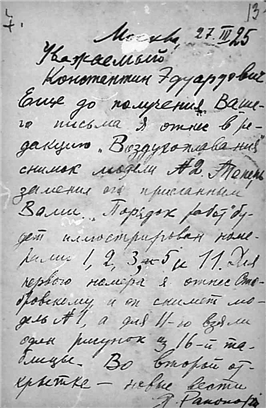 7. 13
Москва, 27 III 25
Уважаемый
Константин Эдуардович
Еще до получения Ваше-
го письма я отнес в ре-
дакцию „Воздухоплавания“
снимок модели №2. Тепер
заменил он присланным
Вами. Порядок работ бу-
дет иллюстрирован номе-
рами 1, 2, 3, 5 и 11. Для
первого номера я отнес
и он снимет мо-
дель №1, а для 11-го взяли
один рисунок из 16-й та-
блицы. Во второй от-
крытке – новые вести
Я. Рапопорт